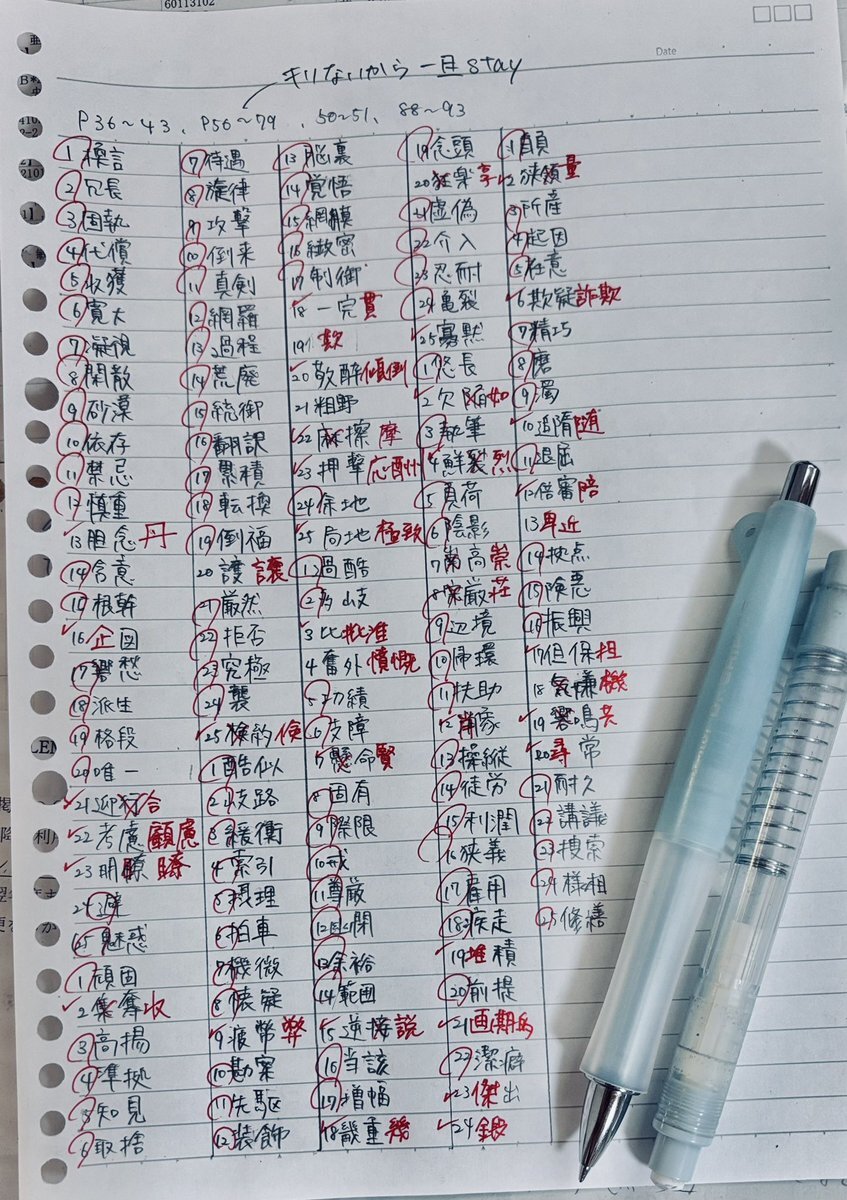 60113102
Date
キリないから 一旦stay
P36～43、P56～79、50～51、88～93
1 標言
2 冗長
3 固執
4 代償
5 収獲
6 寛大
7 凝視
8 閑散
9 砂漠
10 依存
11 禁忌
12 慎重
13 胆念 丹
14 含意
15 根幹
16 企図
17 郷愁
18 派生
19 格段
20 唯一
21 迎 合
22 考慮 顧慮
23 明瞭
24 避
25 魅惑
1 頑固
2 集奪 収
3 高揚
4 準拠
5 知見
6 取捨
7 待遇
8 旋律
9 攻撃
10 倒来
11 真剣
12 網羅
13 過程
14 荒廃
15 統御
16 翻訳
17 累積
18 転換
19 倒福
20 護 譲
21 厳然
22 拒否
23 究極
24 襲
25 検約 倹
1 酷似
2 岐路
3 緩衝
4 索引
5 摂理
6 拍車
7 機微
8 懐疑
9 疲幣 弊
10 勘案
11 先駆
12 装飾
13 脳裏
14 覚悟
15 網膜
16 緻密
17 制御
18 一完 貫
19 款
20 敬酔 傾倒
21 粗野
22 麻擦 摩
23 押撃 応酬
24 余地
25 局地 極致
1 過酷
2 多岐
3 比 批准
4 奮外 憤慨
5 功績
6 支障
7 懸命 賢
8 固有
9 際限
10 戒
11 尊厳
12 閉
13 余裕
14 範囲
15 逆接 説
16 当該
17 増幅
18 幾重 幾
19 念頭
20 狂楽 享
21 虚偽
22 介入
23 忍耐
24 亀裂
25 寡黙
1 悠長
2 欠陥 如
3 執筆
4 鮮裂 烈
5 負荷
6 陰影
7 高 崇
8 厳 荘
9 辺境
10 帰環
11 扶助
12 肖像
13 操縦
14 徒労
15 利潤
16 狭義
17 雇用
18 疾走
19 堆積
20 前提
21 画期的
22 潔癖
23 傑出
24 鍛
1 貞
2 狭 領 量
3 所産
4 起因
5 任意
6 欺疑 詐欺
7 精巧
8 磨
9 濁
10 追隋 随
11 退屈
12 倍審 陪
13 卑近
14 拠点
15 険悪
16 振興
17 但保 担
18 気嫌 機
19 響鳴 共
20 尋常
21 耐久
22 講議
23 捜索
24 様相
25 修繕